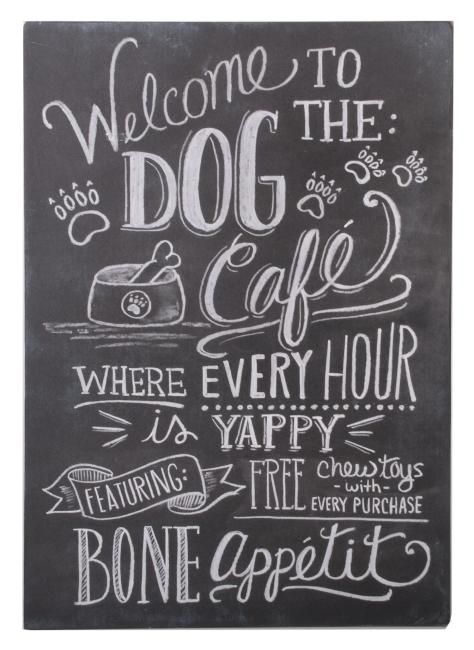 Welcome TO
THE:
DOG
Café
WHERE EVERY HOUR
is YAPPY
FEATURING:
FREE chew toys
- with -
EVERY PURCHASE
BONE appétit